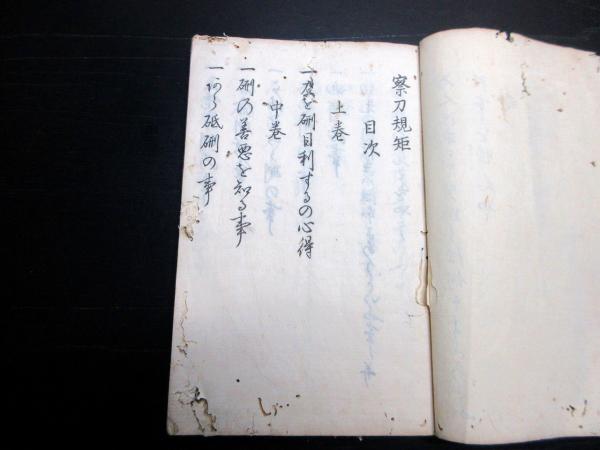 察刀規矩
目次
上巻
一刀を研目利するの心得
中巻
一研の善悪を知る事
一あら砥研の事